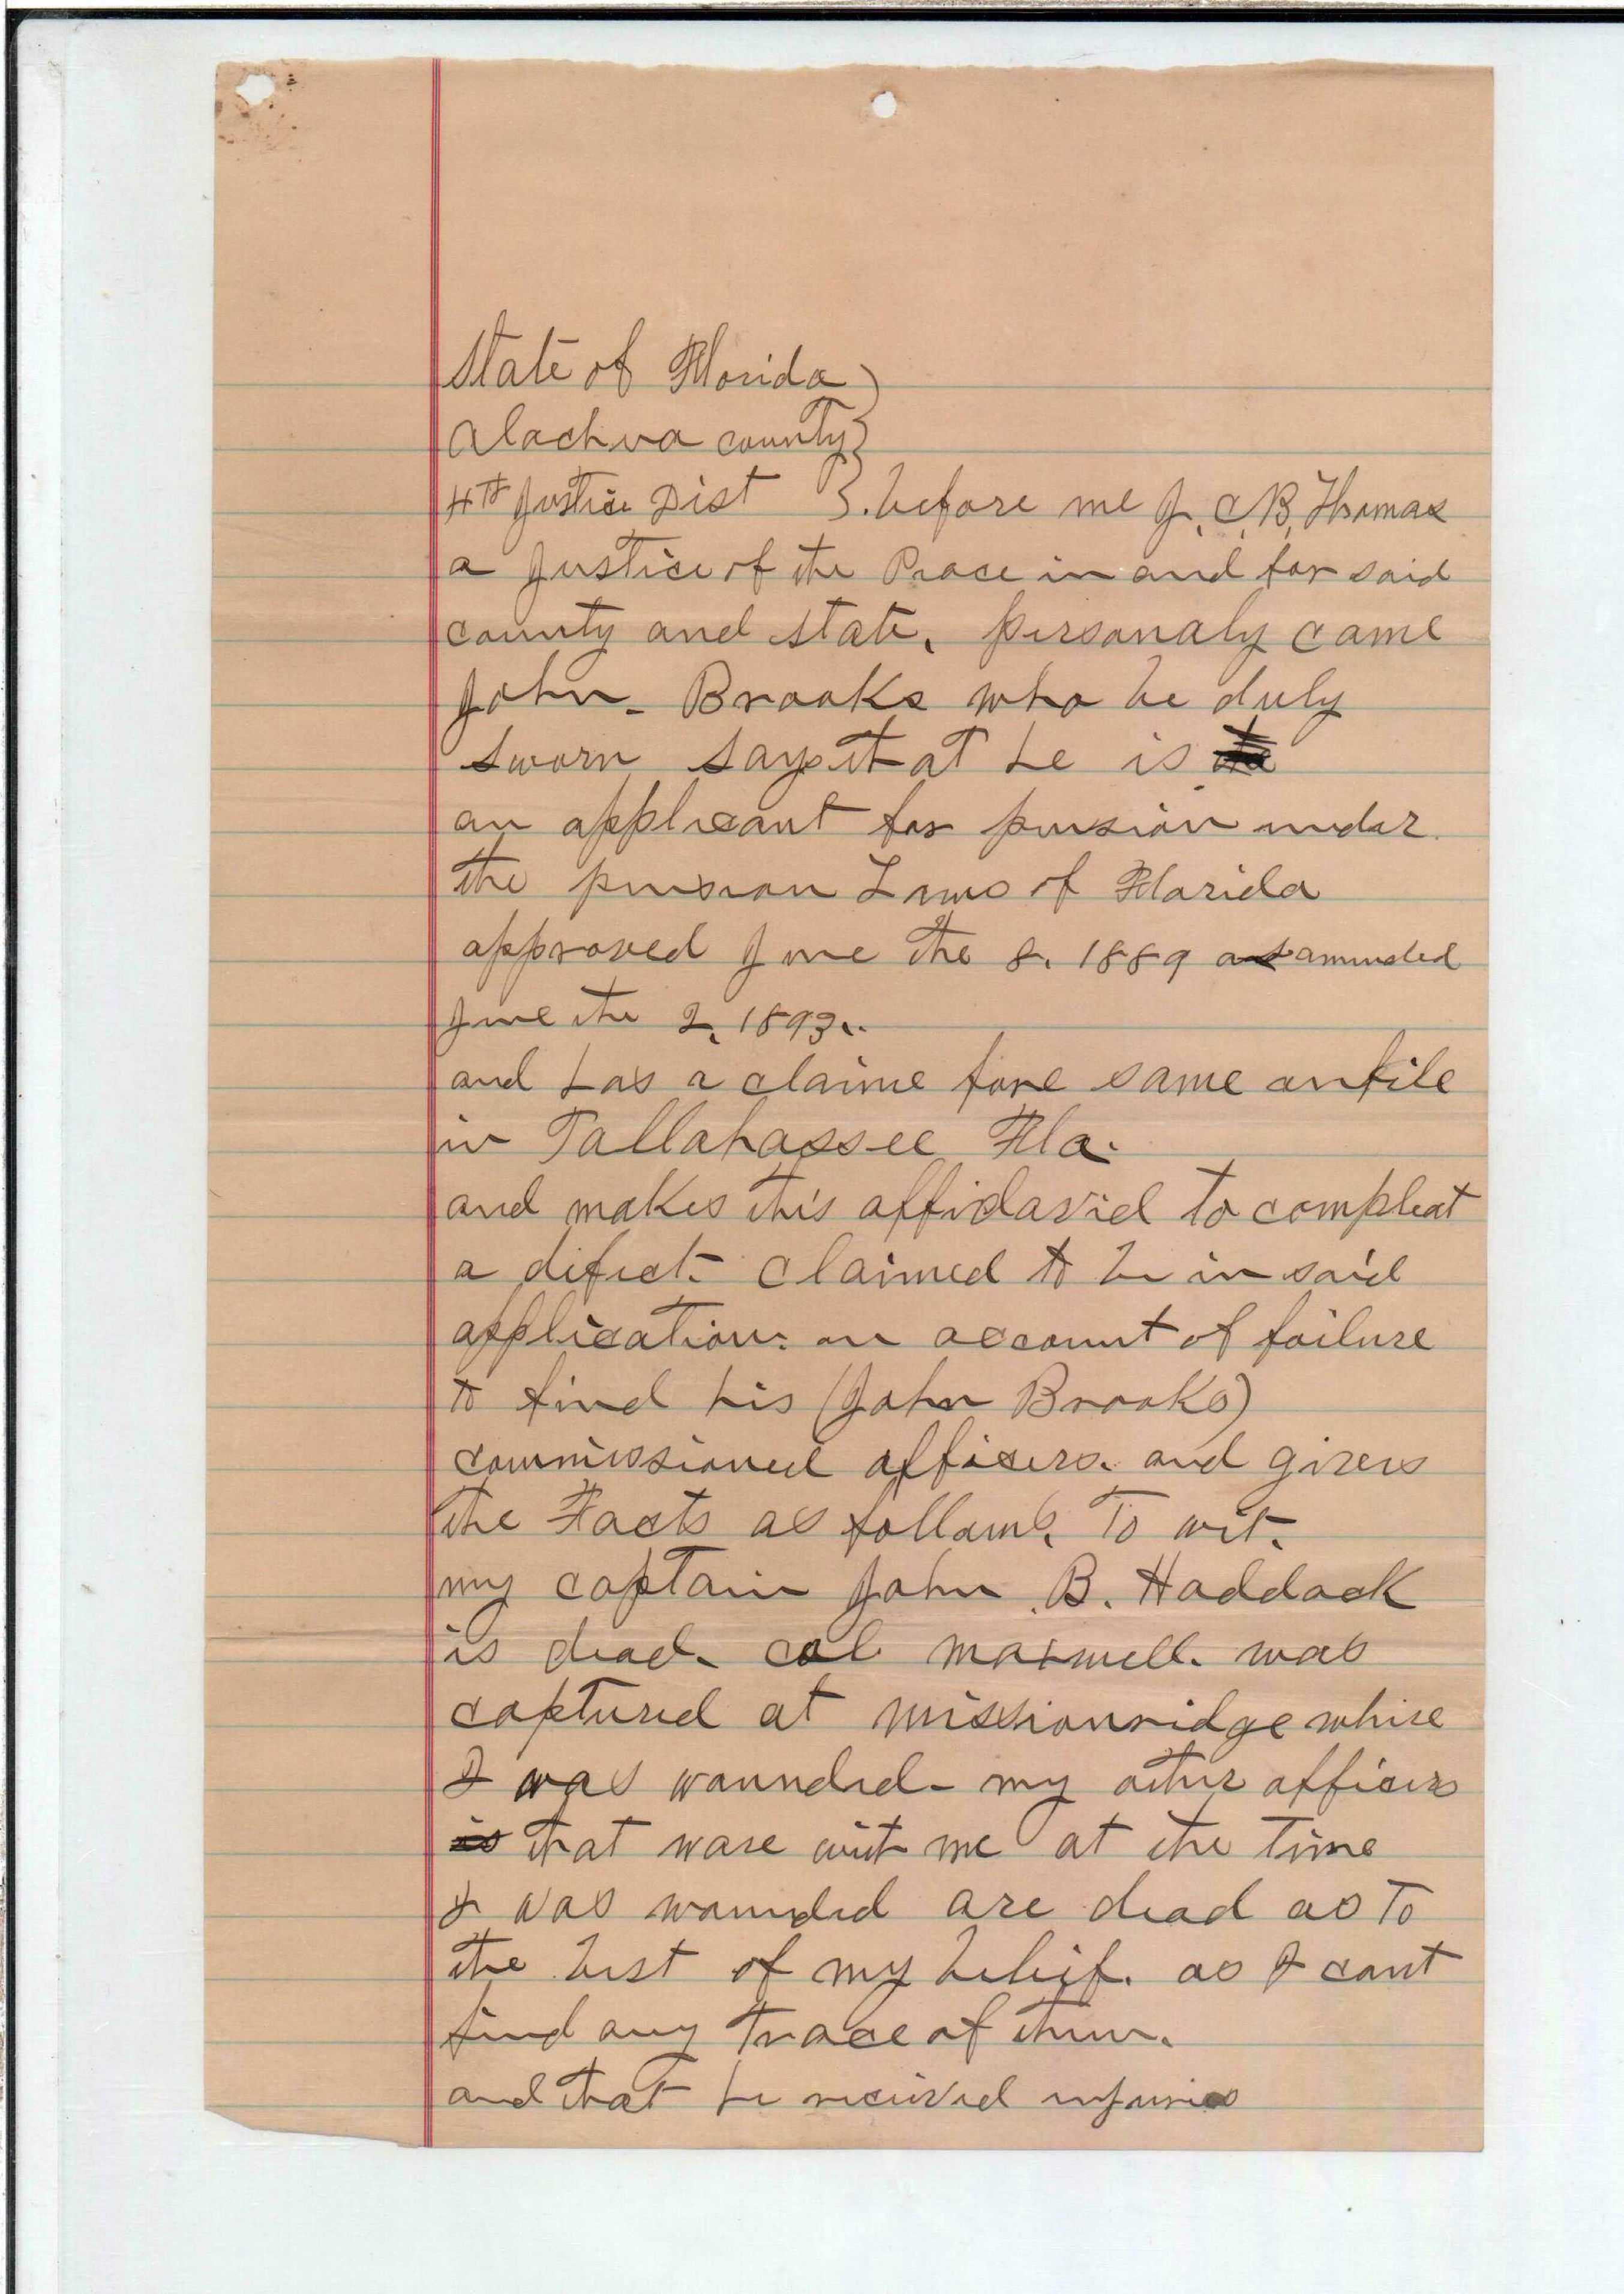 State of Florida )
Alachua county }
4th Justice Dist }. before me J. C. B. Thomas
a Justice of the Peace in and for said
county and state. personaly came
John. Brooks who be duly
sworn says that he is
an applicant for pension under
the pension Laws of Florida
approved June the 8. 1889 as amended
June the 2. 1893.
and has a claime fore same onfile
in Tallahassee Fla.
and makes this affidavid to compleat
a defect. claimed to be in said
application. on account of failure
to find his (John Brooks)
commissioned officers. and givees
the Facts as follows. To wit.
my captain John B. Haddock
is dead. col maxwell. was
captured at missionridge whire
I was wounded - my other officers
that ware with me at the time
I was wounded are dead as To
the best of my belief. as I cant
find any Trace of them.
and that he received injuries